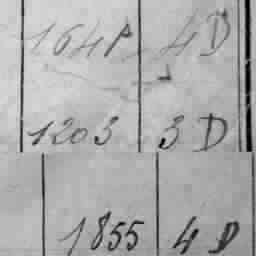 164P 4D
1203 3D
1855 4D